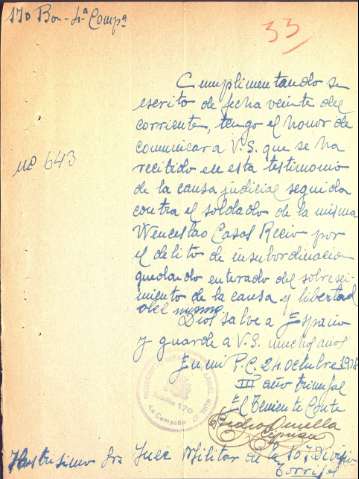 170 Bon - 4ª Compª
33
Cumplimentando su
escrito de fecha veinte del
corriente, tengo el honor de
comunicar a V.S. que se ha
recibido en esta testimonio
nº 643
de la causa judicial seguida
contra el soldado de la misma
Wenceslao Casas Recio por
el delito de insubordinacion
quedando enterado del sobresei-
miento de la causa y libertad
del mismo.
Dios salve a España
y guarde a V.S. muchos años
En mi P.C. 21 Octubre 1938
III año triunfal
El Teniente Comte
Pedro
Ilustrisimo Sr Juez Militar de la 10ª Division
Torrijos